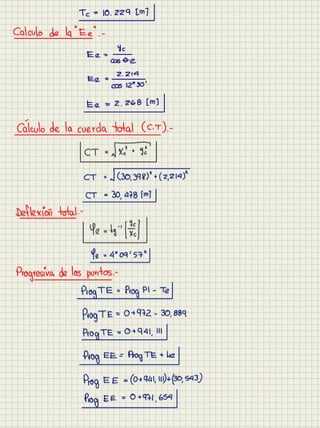 Tc = 10.229 [m]
Calculo de la "Ee".-
Ee = yc / cos θe
Ee = 2.214 / cos 12°30'
Ee = 2.268 [m]
Cálculo de la cuerda total (C.T).-
CT = √Xc² + yc²
CT = √(30,398)² + (2,214)²
CT = 30,478 [m]
Deflexión total.-
φe = tg⁻¹ [yc / Xc]
φe = 4°09'57"
Progresiva de los puntos.-
Prog TE = Prog PI - Te
Prog TE = 0+972 - 30,889
Prog TE = 0+941,111
Prog EE = Prog TE + Le
Prog EE = (0+941,111)+(30,543)
Prog EE = 0+971,654